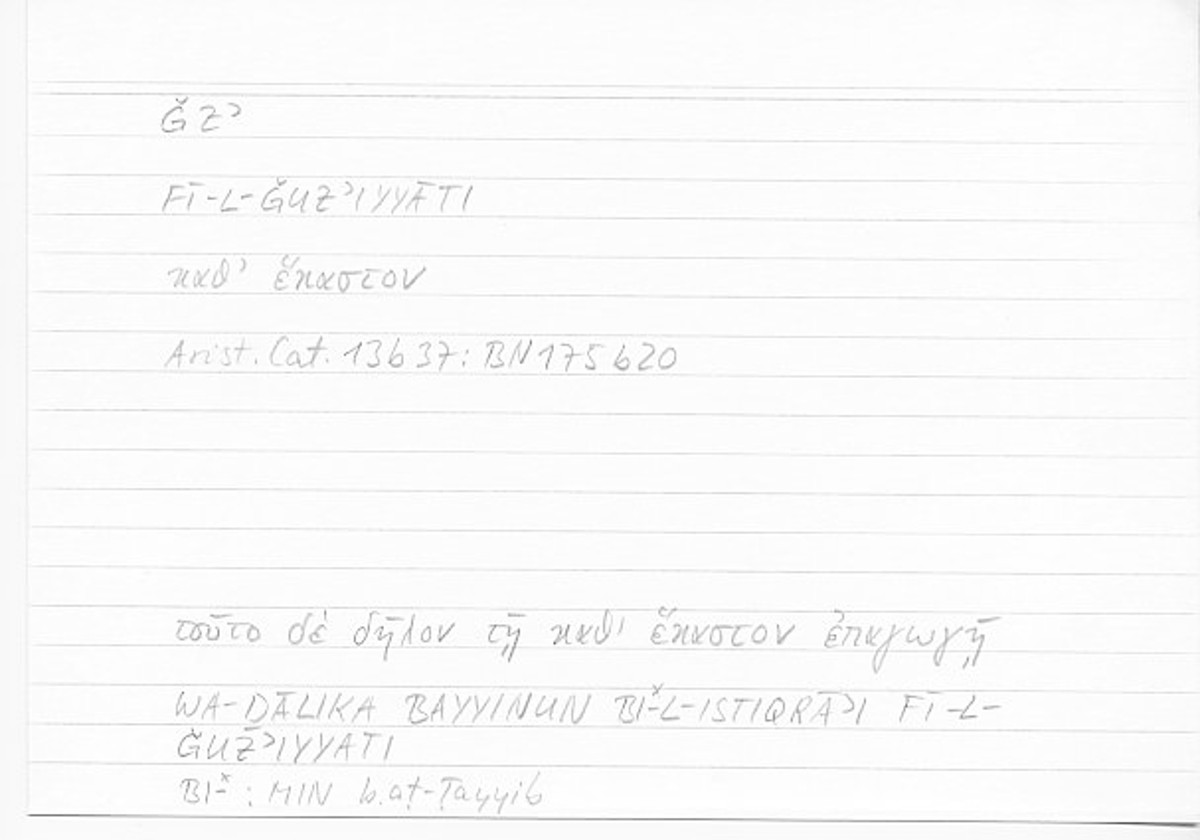 ǦZʾ
FĪ-L-ǦUZʾIYYĀTI
καθ’ ἕκαστον
Arist. Cat. 13b37: BN175b20
τοῦτο δὲ δῆλον τῇ καθ’ ἕκαστον ἐπαγωγῇ
WA-ḎĀLIKA BAYYINUN BI-ˣL-ISTIQRĀʾI FĪ-L-
ǦUZʾIYYATI
BI-ˣ: MIN b.aṭ-Ṭayyib